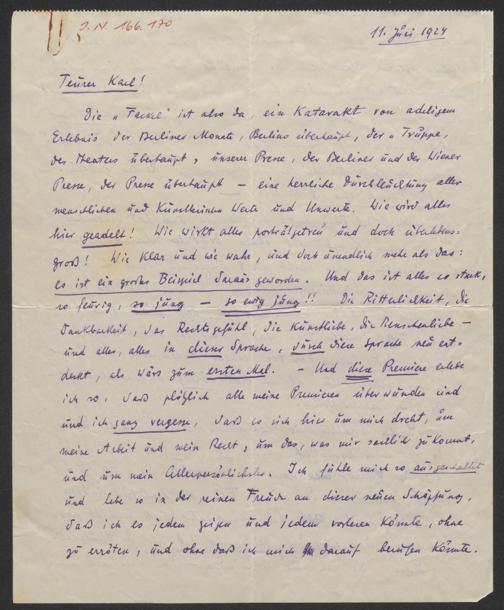 I.N. 166.170
11. Juni 1924
Teurer Karl!
Die „Fackel" ist also da, ein Katarakt von adeligem
Erlebnis der Berliner Monate, Berlins überhaupt, der „Truppe,
des Theaters überhaupt, unserer Presse, der Berliner und der Wiener
Presse, der Presse überhaupt — eine herrliche Durchleuchtung aller
menschlichen und künstlerischen Werte und Unwerte. Wie wird alles
hier geadelt! Wie wirkt alles porträtgetreu und doch überlebens-
groß! Wie klar und wie wahr, und doch unendlich mehr als das:
es ist ein großes Beispiel daraus geworden. Und das ist alles so stark,
so feurig, so jung — so ewig jung!! Die Ritterlichkeit, die
Dankbarkeit, das Rechtsgefühl, die Kunstliebe, die Menschenliebe —
und alles, alles in dieser Sprache, durch diese Sprache neu ent-
deckt, als wärs zum ersten Mal. — Und diese Premiere erlebe
ich so, daß plötzlich alle meine Premieren überwunden sind
und ich ganz vergesse, daß es sich hier um mich dreht, um
meine Arbeit und mein Recht, um das, was mir rechtlich zukommt,
und um mein Allerpersönlichstes. Ich fühle mich so ausgeschaltet
und lebe so in der reinen Freude an dieser neuen Schöpfung,
daß ich es jedem zeigen und jedem vorlesen könnte, ohne
zu erröten, und ohne daß ich mich darauf berufen könnte.